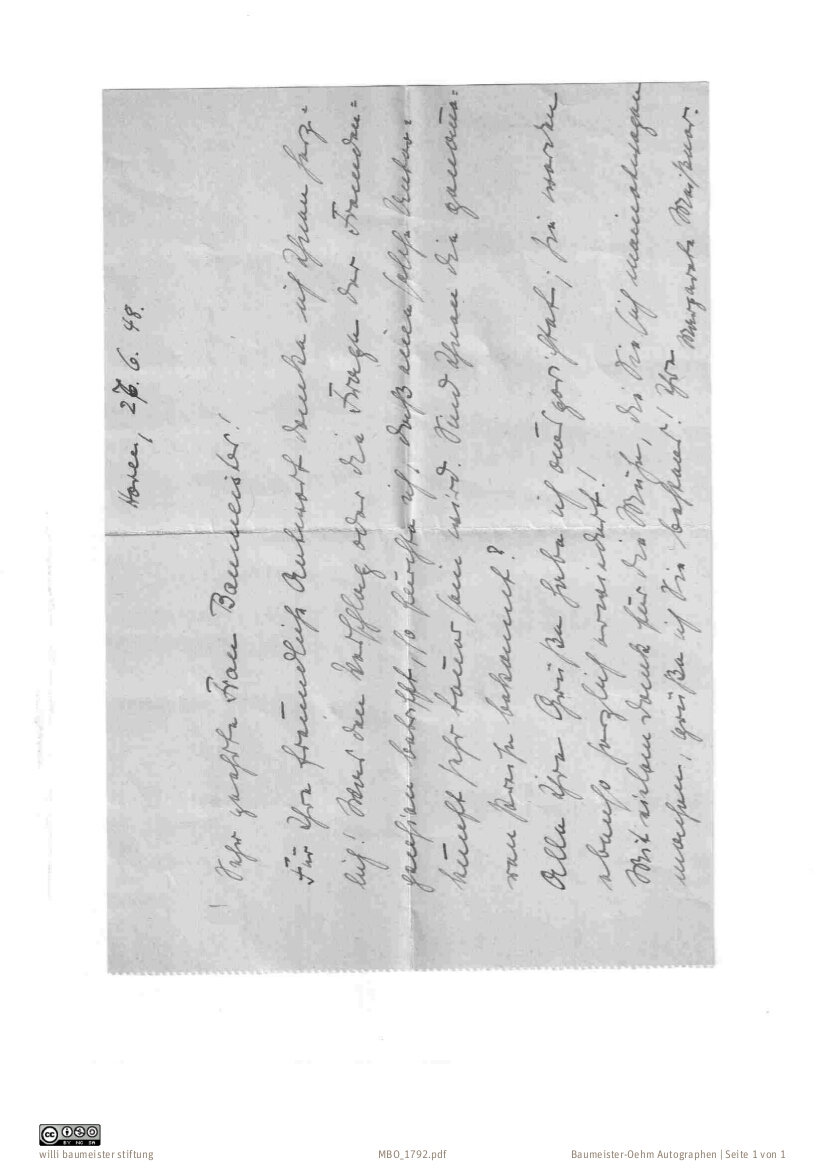 Horen, 26. 6. 48.
Sehr geehrte Frau Baumeister!
Für Ihre freundliche Antwort danke ich Ihnen herz-
lich! Was den Vorschlag oder die Frage der Fremden-
pension betrifft, so fürchte ich, daß eine solche Unter-
kunft sehr teuer sein wird. Sind Ihnen die genaue-
ren Preise bekannt?
Alle Ihre Grüße habe ich ausgerichtet; sie werden
ebenso herzlich erwiedert!
Mit vielem Dank für die Mühe, die Sie sich meinetwegen
machen, grüße ich Sie bestens! Ihre Margarete Meißner.
willi baumeister stiftung
MBO_1792.pdf
Baumeister-Oehm Autographen | Seite 1 von 1
CC BY NC SA